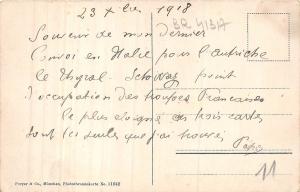 23 Xbre 1918
BR 4/3/7
Souvenir de mon dernier
Convoi en Italie pour l'autriche
le Thyrol - Schwaz point
d'occupation des troupes Francaises
le plus eloigné au trois cartes
sont les seules que j'ai trouvées
Papa
11
Purger & Co., München, Photochromiekarte No. 11642